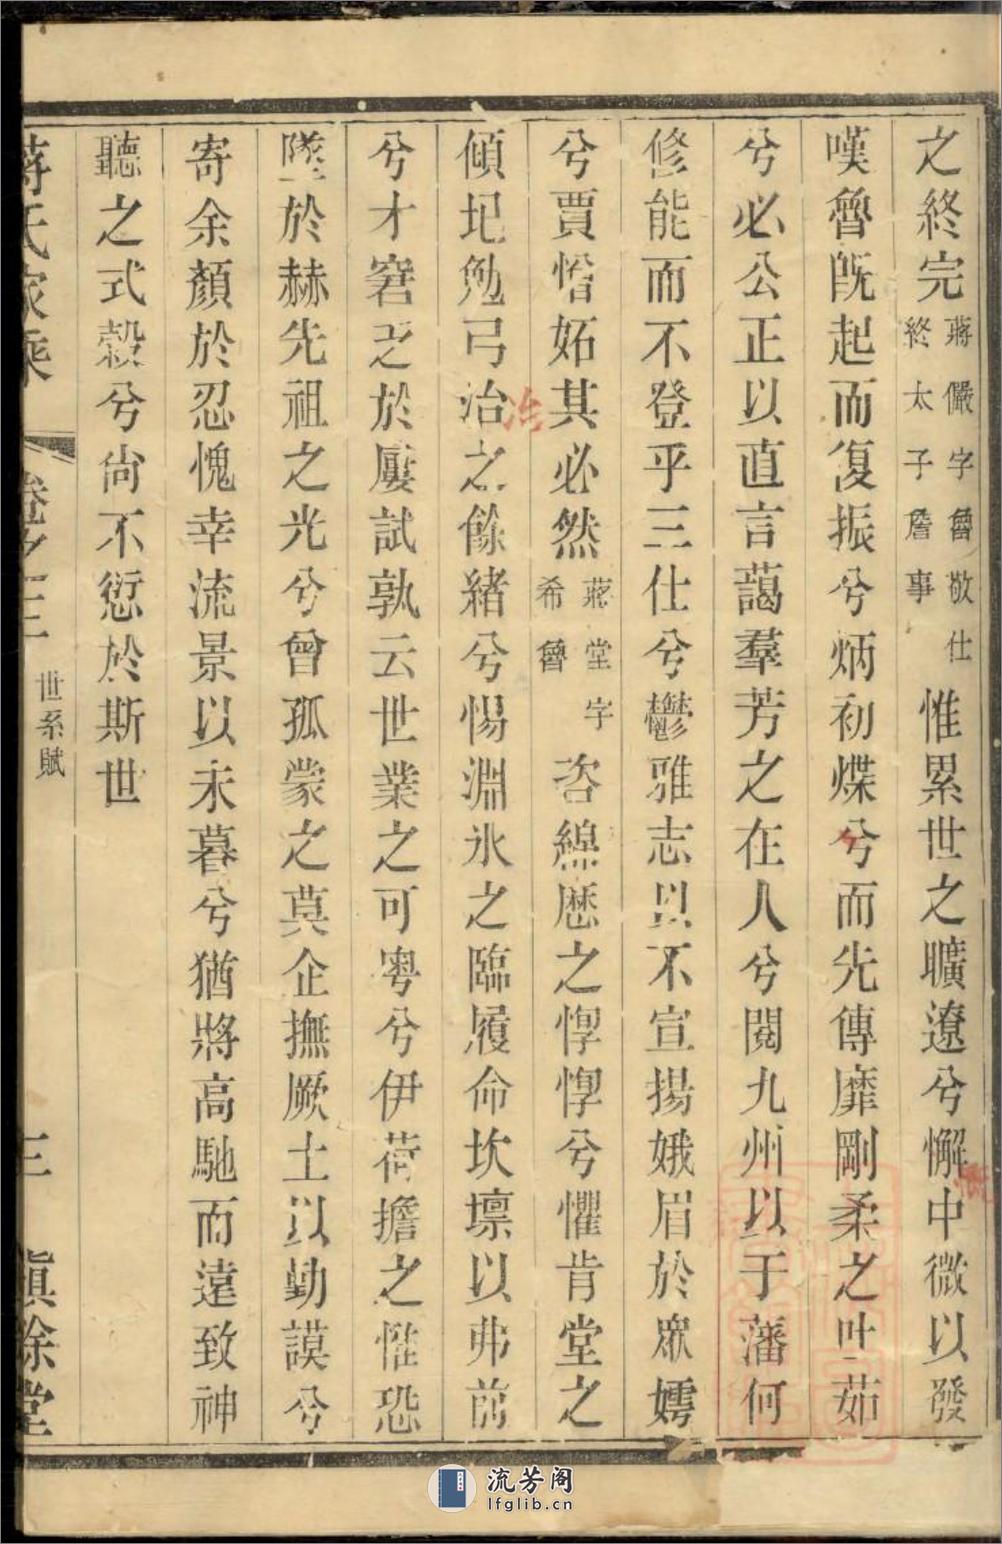 之終完蔣儼字魯敬仕終太子詹事惟累世之曠遼兮懈中微以發
嘆魯旣起而復振兮炳初煠兮而先傳靡剛柔之吐茹
兮必公正以直言藹羣芳之在人兮閱九州以于藩何
修能而不登乎三仕兮鬱雅志具不宣揚娥眉於眾嫮
兮賈憎妬其必然蔣堂字希魯咨綿歷之惸惸兮懼肯堂之
傾圮勉弓治之餘緒兮惕淵氷之臨履命坎壈以弗前
冶
兮才窘乏於屢試孰云世業之可粤兮伊荷擔之惟恐
墜於赫先祖之光兮曾孤蒙之莫企撫厥土以勤謨兮
寄余顏於忍愧幸流景以未暮兮猶將高馳而遠致神
聽之式榖兮尙不愆於斯世
蔣氏家乘 卷之三 世系賦 三 慎餘堂
流芳阁
lfglib.cn